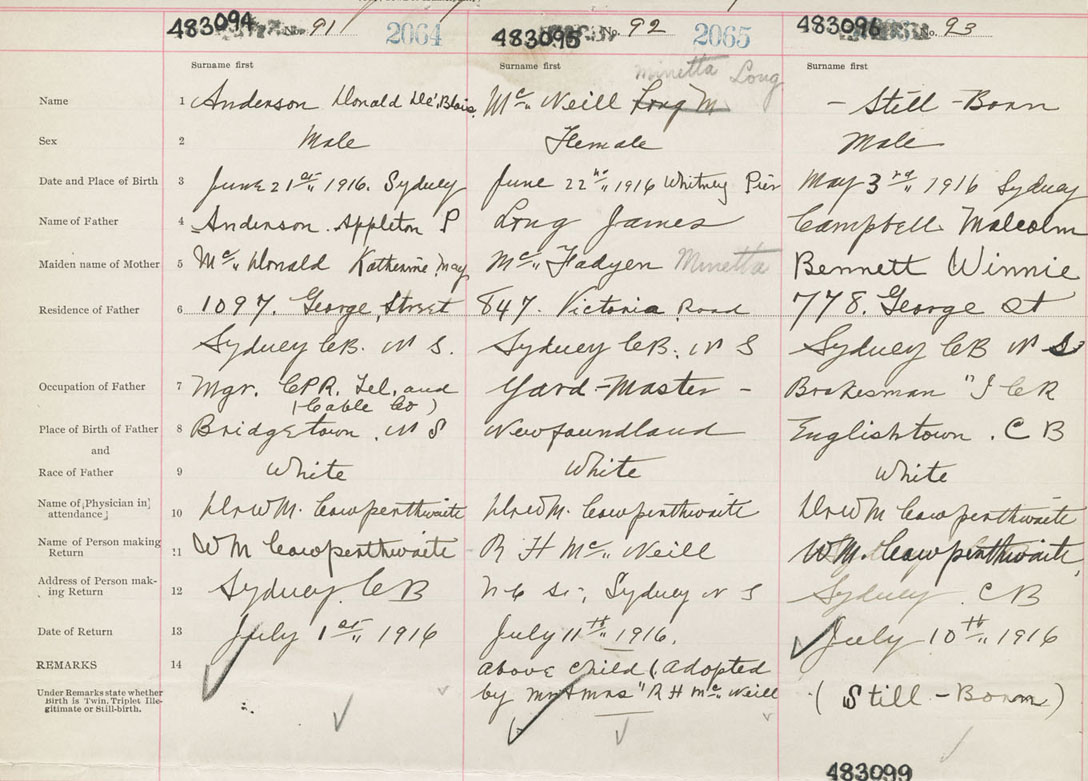 483094 No. 91 2064 483095 No. 92 2065 483096 No. 93
Surname first Surname first Minetta Long Surname first
Name 1 Anderson Donald De'Blois Mc Neill Long M - Still-Born
Sex 2 Male Female Male
Date and Place of Birth 3 June 21st 1916. Sydney June 22nd 1916 Whitney Pier May 3rd 1916 Sydney
Name of Father 4 Anderson. Appleton P Long James Campbell Malcolm
Maiden name of Mother 5 Mc Donald Katherine May Mc Fadyen Minetta Bennett Winnie
Residence of Father 6 1097. George Street 847. Victoria Road 778. George St
Sydney CB. N S. Sydney CB. N S Sydney CB N S
Occupation of Father 7 Mgr. CPR. Tel. and Yard-Master - Brakesman "I C R
(Cable Co)
Place of Birth of Father 8 Bridgetown. N S Newfoundland Englishtown. C B
and
Race of Father 9 White White White
Name of [Physician in
attendance] 10 Dr W M. Cowperthwaite Dr W M. Cowperthwaite Dr W M Cowperthwaite
Name of Person making
Return 11 W M Cowperthwaite R H Mc Neill W M. Cowperthwaite
Address of Person mak-
ing Return 12 Sydney. C B Sydney N S Sydney. C B
Date of Return 13 July 1st 1916 July 11th 1916. July 10th 1916
REMARKS 14 above child (Adopted
Under Remarks state whether by Mr & Mrs "R H Mc Neill (Still-Born)
Birth is Twin, Triplet Ille-
gitimate or Still-birth.
483099